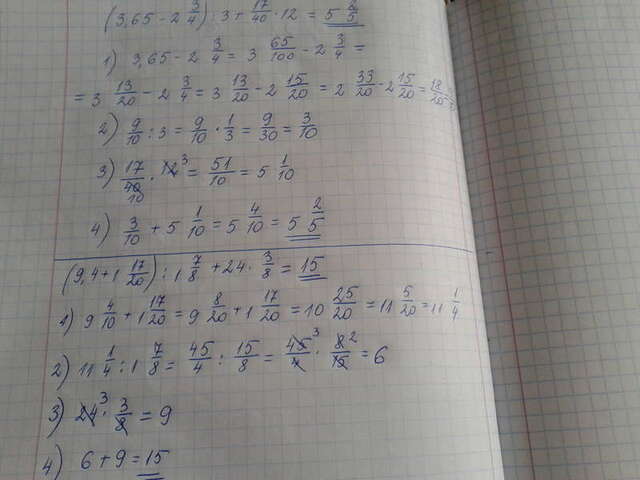 (3,65 - 2 3/4) : 3 + 17/40 · 12 = 5 2/5
1) 3,65 - 2 3/4 = 3 65/100 - 2 3/4 =
= 3 13/20 - 2 3/4 = 3 13/20 - 2 15/20 = 2 33/20 - 2 15/20 = 18/20
2) 9/10 : 3 = 9/10 · 1/3 = 9/30 = 3/10
3) 17/40 10 · 12 3 = 51/10 = 5 1/10
4) 3/10 + 5 1/10 = 5 4/10 = 5 2/5
(9,4 + 1 17/20) : 1 7/8 + 24 · 3/8 = 15
1) 9 4/10 + 1 17/20 = 9 8/20 + 1 17/20 = 10 25/20 = 11 5/20 = 11 1/4
2) 11 1/4 : 1 7/8 = 45/4 : 15/8 = 45 3/4 · 8 2/15 = 6
3) 24 3 · 3/8 = 9
4) 6 + 9 = 15